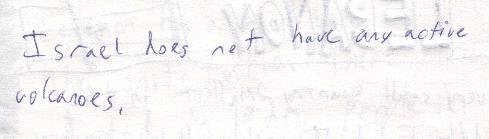 Israel does not have any active
volcanoes.